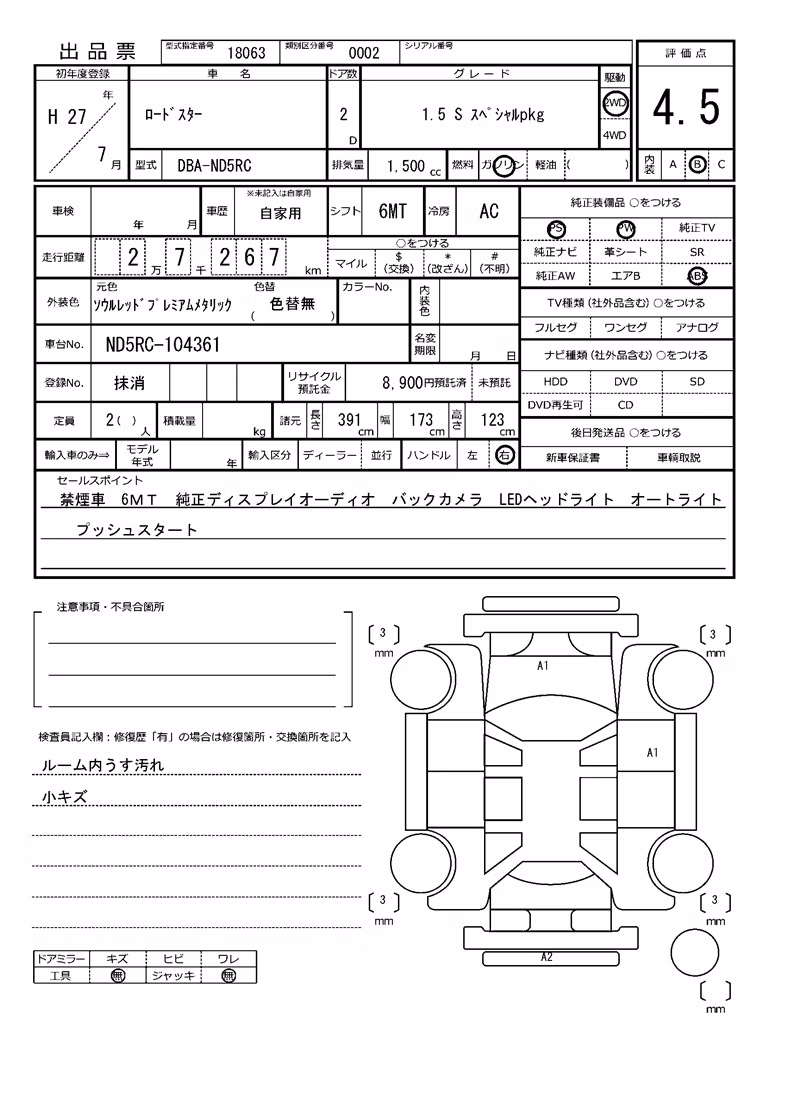 出品票 型式指定番号 18063 類別区分番号 0002 シリアル番号
評価点
4.5
内装 A B C
初年度登録 車名 ドア数 グレード 駆動
H 27 年 7 月 ﾛｰﾄﾞｽﾀｰ 2 D 1.5 S ｽﾍﾟｼｬﾙpkg 2WD 4WD
型式 DBA-ND5RC 排気量 1,500 cc 燃料 ガソリン 軽油 ( )
車検 年 月 車歴 ※未記入は自家用 自家用 シフト 6MT 冷房 AC
走行距離 2 万 7 千 2 6 7 km ○をつける
マイル $ (交換) * (改ざん) # (不明)
外装色 元色 ｿｳﾙﾚｯﾄﾞﾌﾟﾚﾐｱﾑﾒﾀﾘｯｸ 色替 ( 色替無 ) カラーNo. 内装色
車台No. ND5RC-104361 名変期限 月 日
登録No. 抹消 リサイクル預託金 8,900円預託済 未預託
定員 2( ) 人 積載量 kg 諸元 長さ 391 cm 幅 173 cm 高さ 123 cm
輸入車のみ⇒ モデル年式 年 輸入区分 ディーラー 並行 ハンドル 左 右
純正装備品 ○をつける
PS PW 純正TV
純正ナビ 革シート SR
純正AW エアB ABS
TV種類(社外品含む)○をつける
フルセグ ワンセグ アナログ
ナビ種類(社外品含む)○をつける
HDD DVD SD
DVD再生可 CD
後日発送品 ○をつける
新車保証書 車輌取説
セールスポイント
禁煙車 6MT 純正ディスプレイオーディオ バックカメラ LEDヘッドライト オートライト
プッシュスタート
注意事項・不具合箇所
検査員記入欄：修復歴「有」の場合は修復箇所・交換箇所を記入
ルーム内うす汚れ
小キズ
ドアミラー キズ ヒビ ワレ
工具 無 ジャッキ 無
〔 3 〕 〔 3 〕
mm mm
A1
A1
〔 3 〕 〔 3 〕
mm mm
A2
〔 〕
mm